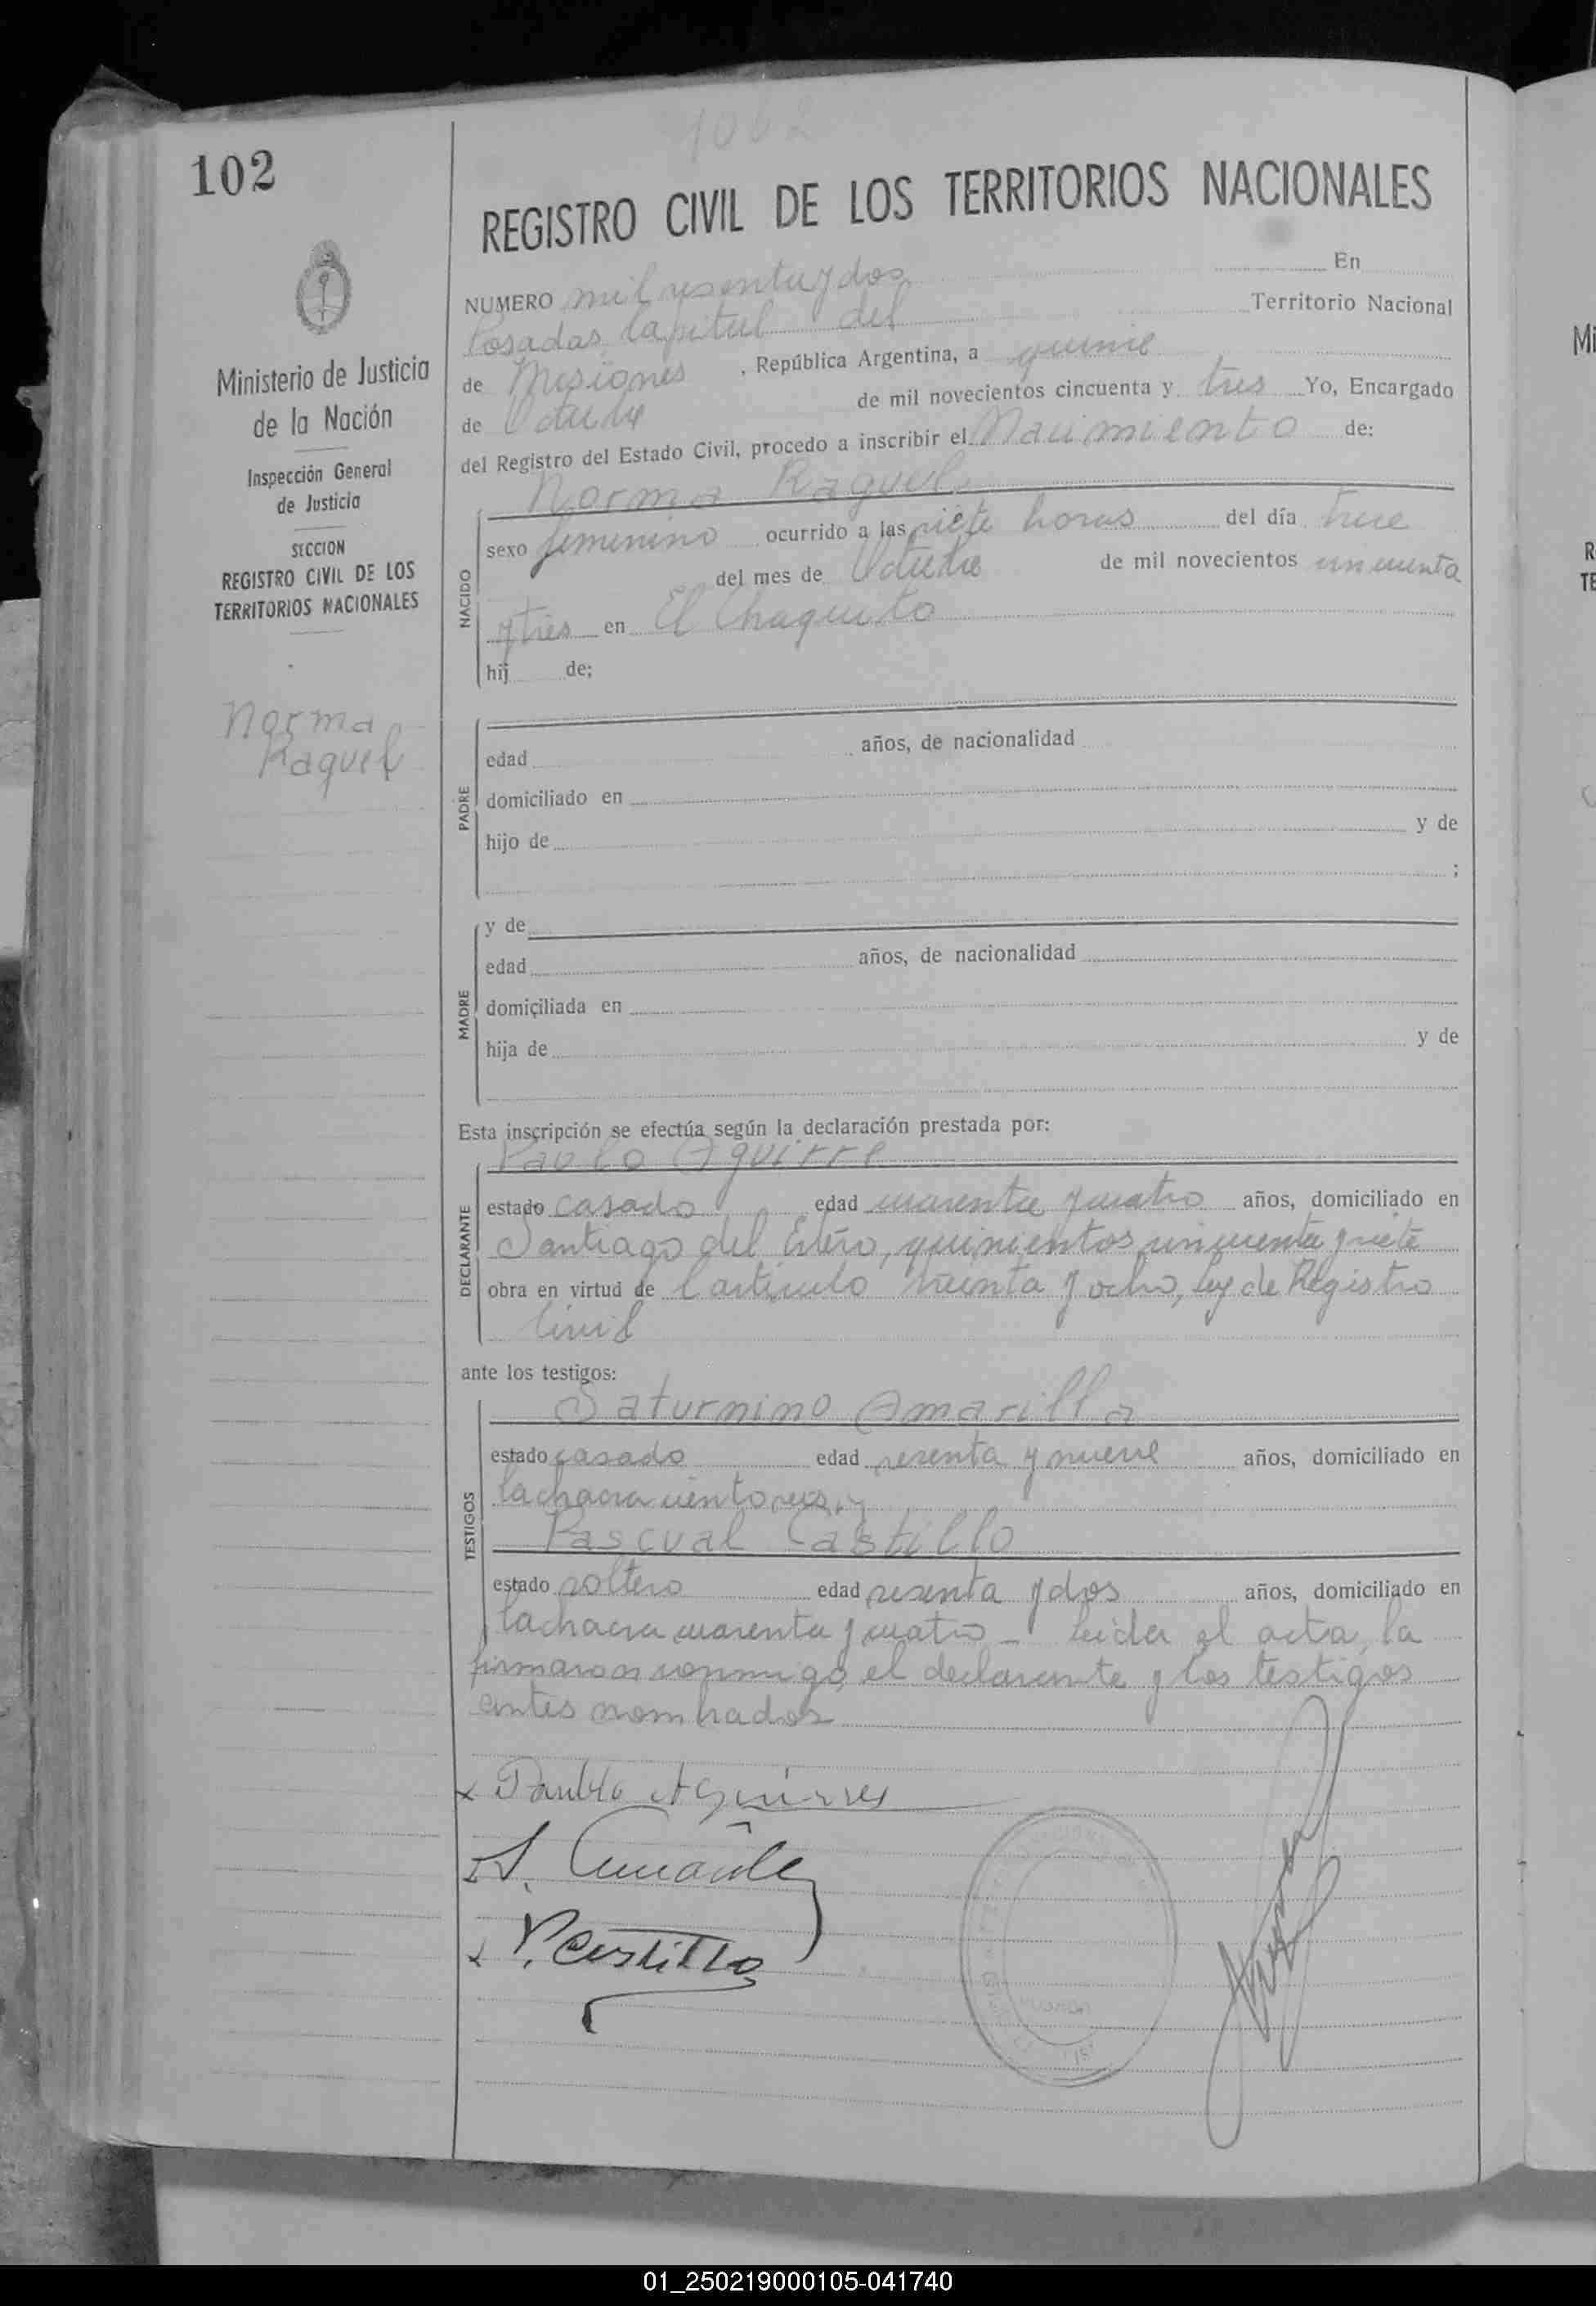 1062
102
REGISTRO CIVIL DE LOS TERRITORIOS NACIONALES
Ministerio de Justicia
de la Nación
Inspección General
de Justicia
SECCION
REGISTRO CIVIL DE LOS
TERRITORIOS NACIONALES
Norma
Raquel
NUMERO mil sesenta y dos En
Posadas Capital del Territorio Nacional
de Misiones, República Argentina, a quince
de Octubre de mil novecientos cincuenta y tres Yo, Encargado
del Registro del Estado Civil, procedo a inscribir el Nacimiento de:
Norma Raquel
NACIDO
sexo femenino ocurrido a las siete horas del día trece
del mes de Octubre de mil novecientos cincuenta
y tres en El Chaquito
hij de;
PADRE
edad años, de nacionalidad
domiciliado en
hijo de y de
;
MADRE
y de
edad años, de nacionalidad
domiciliada en
hija de y de
Esta inscripción se efectúa según la declaración prestada por:
DECLARANTE
Pavlo Aguirre
estado casado edad cuarenta y cuatro años, domiciliado en
Santiago del Estero, quinientos cincuenta y siete
obra en virtud de l artículo treinta y ocho, ley de Registro
Civil
ante los testigos:
TESTIGOS
Saturnino Amarilla
estado casado edad sesenta y nueve años, domiciliado en
la chacra ciento seis, y
Pascual Castillo
estado soltero edad sesenta y dos años, domiciliado en
la chacra cuarenta y cuatro - Leida el acta, la
firmaron conmigo, el declarante y los testigos
antes nombrados
x Paublo Aguirres
S. Amarilla
x P. Castillo
01_250219000105-041740